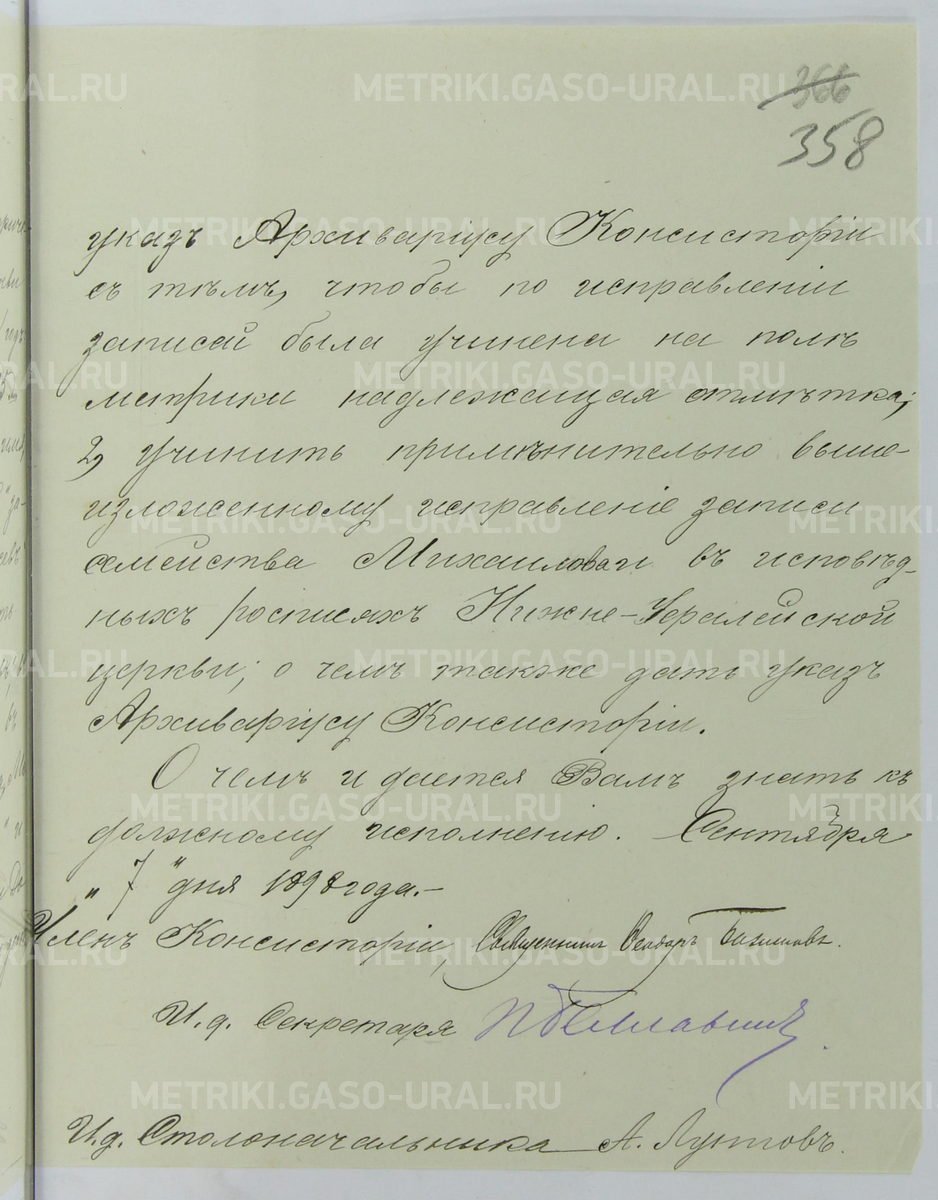 366
358
указъ Архиваріусу Консисторіи
съ тѣмъ, чтобы по исправленіи
записей была учинена на полѣ
метрики надлежащая отмѣтка;
2, учинить примѣнительно выше-
изложенному исправленіе записи
семейства Михайловой въ исповѣд-
ныхъ росписяхъ Нижне-Уфалейской
церкви; о чемъ также дать указъ
Архиваріусу Консисторіи.
О чемъ и дается Вамъ знать къ
должному исполненію. Сентября
„ 7 " дня 1898 года.-
Членъ Консисторіи, Священникъ
И. д. Секретаря
И. д. Столоначальника А. Лутовъ.
METRIKI.GASO-URAL.RU